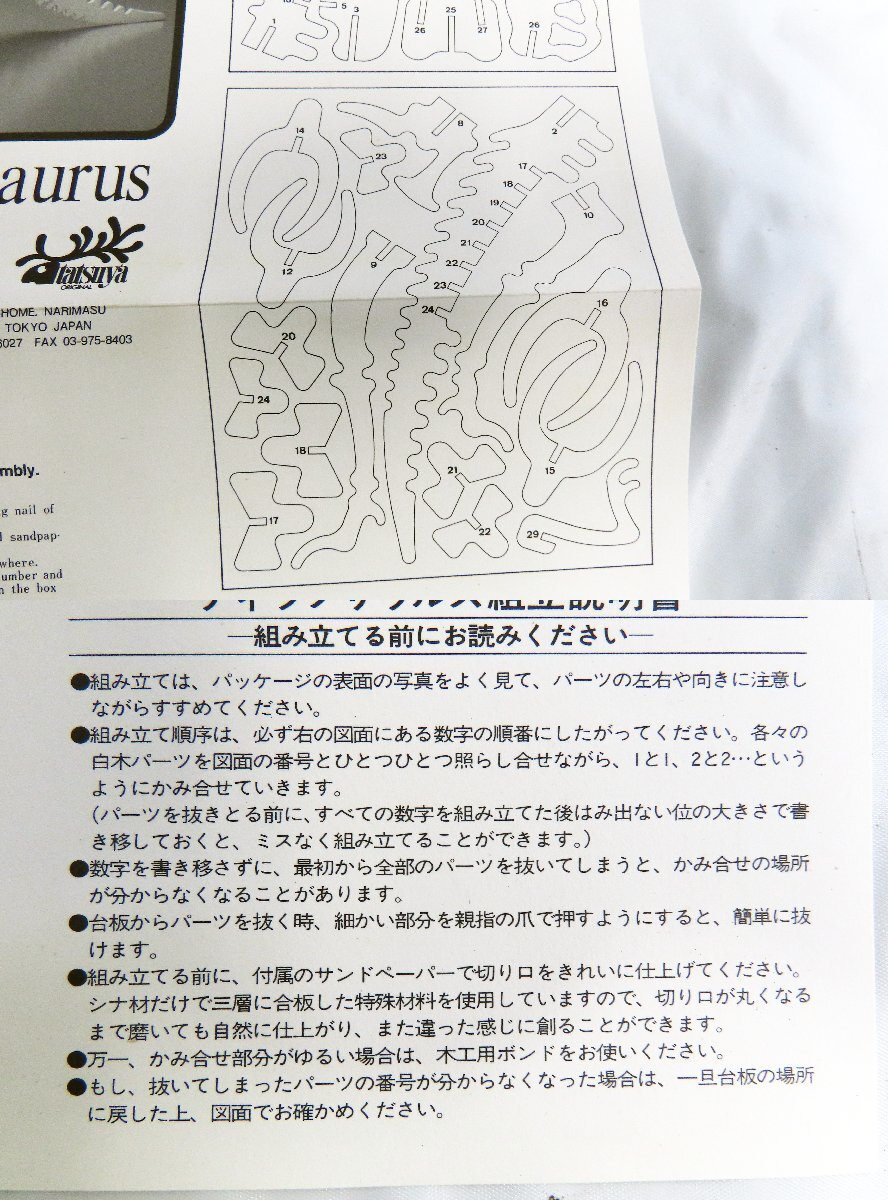 5
3
1
25
26
27
26
aurus
tatsuya
ORIGINAL
CHOME, NARIMASU
TOKYO JAPAN
6027 FAX 03-975-8403
mbly.
g nail of
d sandpap-
where.
umber and
n the box
14
8
2
23
17
18
19
10
20
21
12
9
22
23
24
16
20
24
18
21
15
17
22
29
組立説明書
—組み立てる前にお読みください—
●組み立ては、パッケージの表面の写真をよく見て、パーツの左右や向きに注意し
ながらすすめてください。
●組み立て順序は、必ず右の図面にある数字の順番にしたがってください。各々の
白木パーツを図面の番号とひとつひとつ照らし合せながら、1と1、2と2…という
ようにかみ合せていきます。
(パーツを抜きとる前に、すべての数字を組み立てた後はみ出ない位の大きさで書
き移しておくと、ミスなく組み立てることができます。)
●数字を書き移さずに、最初から全部のパーツを抜いてしまうと、かみ合せの場所
が分からなくなることがあります。
●台板からパーツを抜く時、細かい部分を親指の爪で押すようにすると、簡単に抜
けます。
●組み立てる前に、付属のサンドペーパーで切り口をきれいに仕上げてください。
シナ材だけで三層に合板した特殊材料を使用していますので、切り口が丸くなる
まで磨いても自然に仕上がり、また違った感じに創ることができます。
●万一、かみ合せ部分がゆるい場合は、木工用ボンドをお使いください。
●もし、抜いてしまったパーツの番号が分からなくなった場合は、一旦台板の場所
に戻した上、図面でお確かめください。